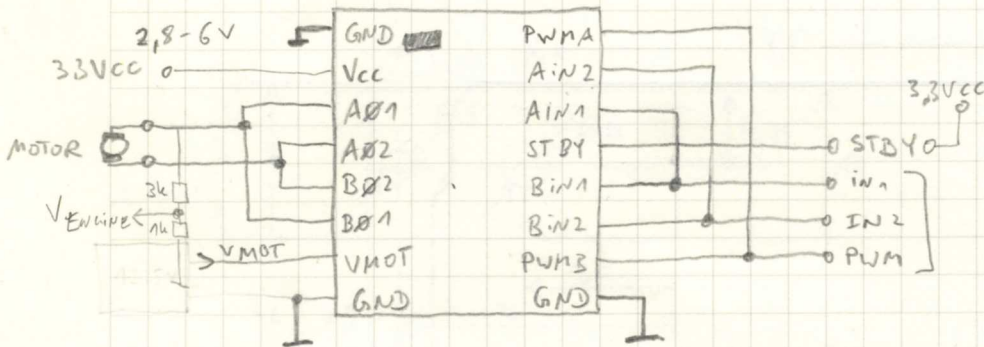 2,8-6V
33VCC
MOTOR
3k
VENGINE
1k
VMOT
GND
Vcc
AØ1
AØ2
BØ2
BØ1
VMOT
GND
PWMA
AiN2
AIN1
STBY
BiN1
BiN2
PWMB
GND
3,3VCC
STBY
iN1
IN2
PWM